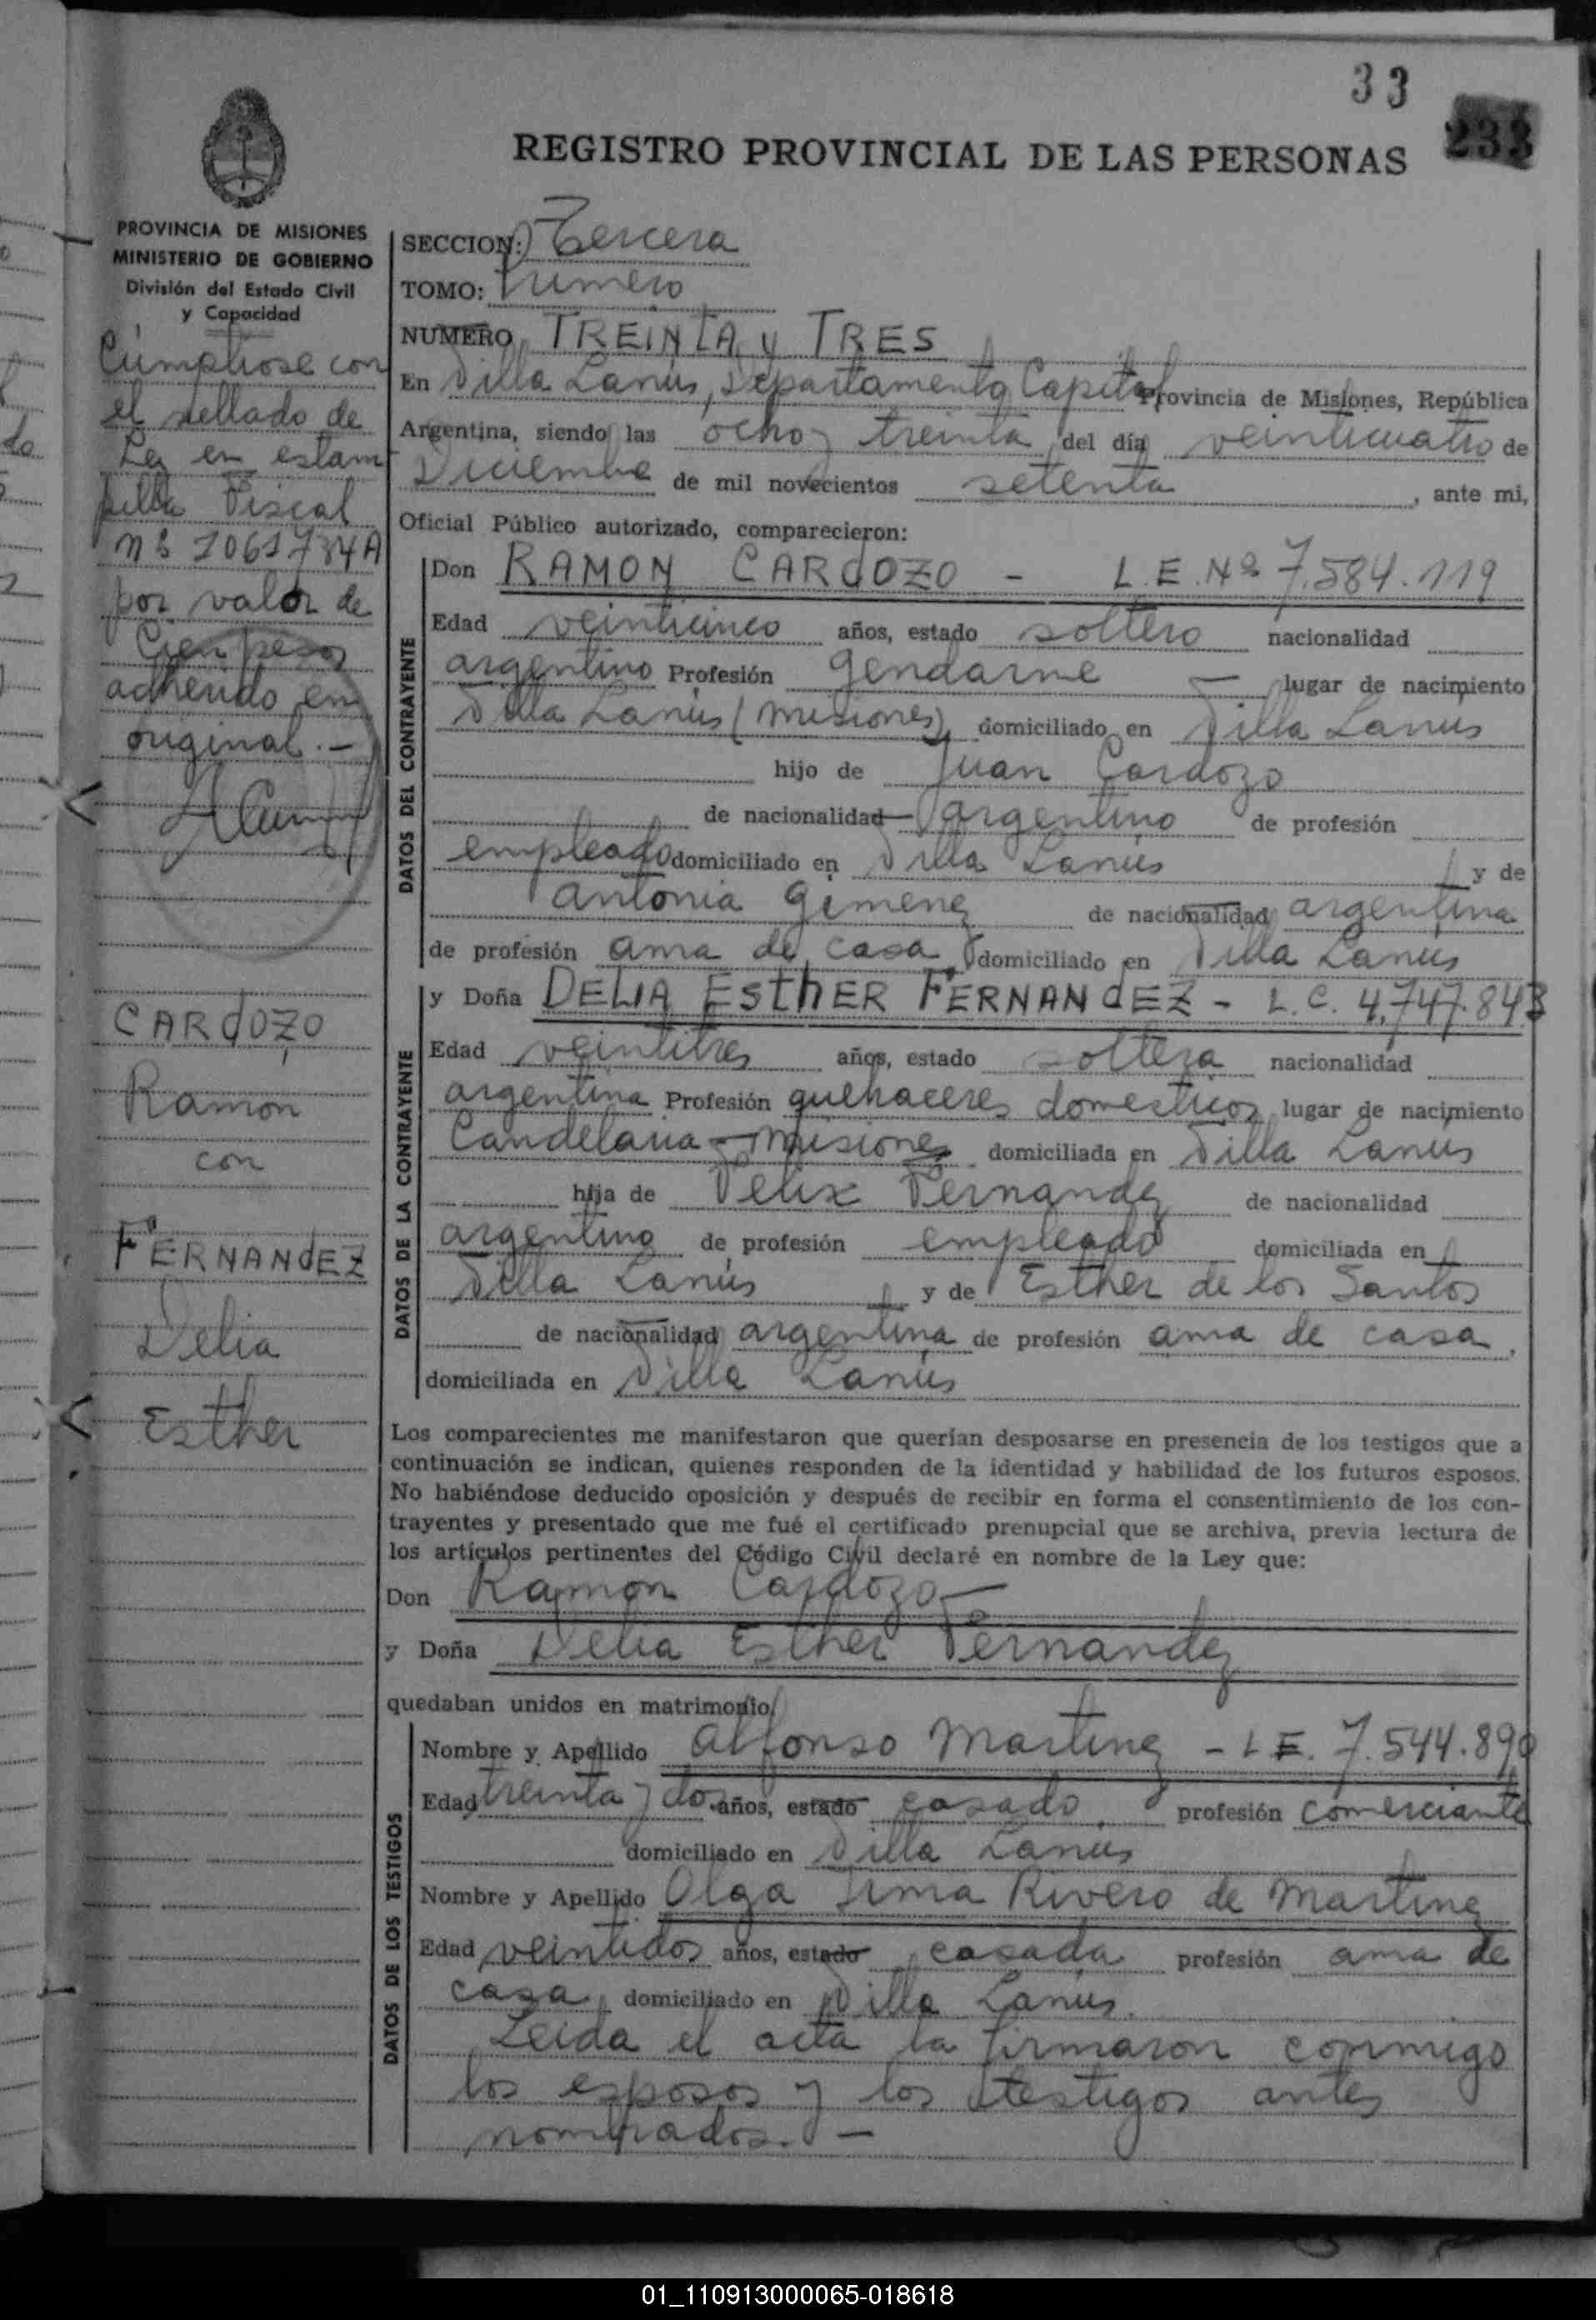 33
233
REGISTRO PROVINCIAL DE LAS PERSONAS
PROVINCIA DE MISIONES
MINISTERIO DE GOBIERNO
División del Estado Civil
y Capacidad
Cúmpliose con
el sellado de
Ley en estam
pilla Fiscal
nº 1061734A
por valor de
Cien pesos
adherido en
original.-
CARdOZO
Ramon
con
FERNANdEZ
Delia
Esther
SECCION: Tercera
TOMO: Primero
NUMERO TREINTA y TRES
En Villa Lanús, Departamento Capital Provincia de Misiones, República
Argentina, siendo las ocho y treinta del día veinticuatro de
Diciembre de mil novecientos setenta, ante mi,
Oficial Público autorizado, comparecieron:
DATOS DEL CONTRAYENTE
Don RAMON CARdOZO - L.E. Nº 7.584.119
Edad veinticinco años, estado soltero nacionalidad
argentino Profesión gendarme - lugar de nacimiento
Villa Lanús (Misiones), domiciliado en Villa Lanús
hijo de Juan Cardozo
de nacionalidad argentino de profesión
empleado domiciliado en Villa Lanús y de
Antonia Gimenez de nacionalidad argentina
de profesión ama de casa domiciliado en Villa Lanús
DATOS DE LA CONTRAYENTE
y Doña DELIA ESthER FERNANdEZ - L.C. 4.747.843
Edad veintitres años, estado soltera nacionalidad
argentina Profesión quehaceres domesticos lugar de nacimiento
Candelaria - Misiones domiciliada en Villa Lanús
hija de Felix Fernandez de nacionalidad
argentino de profesión empleado domiciliada en
Villa Lanús y de Esther de los Santos
de nacionalidad argentina de profesión ama de casa,
domiciliada en Villa Lanús
Los comparecientes me manifestaron que querían desposarse en presencia de los testigos que a
continuación se indican, quienes responden de la identidad y habilidad de los futuros esposos.
No habiéndose deducido oposición y después de recibir en forma el consentimiento de los con-
trayentes y presentado que me fué el certificado prenupcial que se archiva, previa lectura de
los artículos pertinentes del Código Civil declaré en nombre de la Ley que:
Don Ramon Cardozo-
y Doña Delia Esther Fernandez
quedaban unidos en matrimonio
DATOS DE LOS TESTIGOS
Nombre y Apellido Alfonso Martinez - L E. 7.544.890
Edad treinta y dos años, estado casado profesión comerciante
domiciliado en Villa Lanús
Nombre y Apellido Olga Irma Rivero de Martinez
Edad veintidos años, estado casada profesión ama de
casa, domiciliado en Villa Lanús.
Leida el acta la firmaron conmigo
los esposos y los testigos antes
nombrados. -
01_110913000065-018618